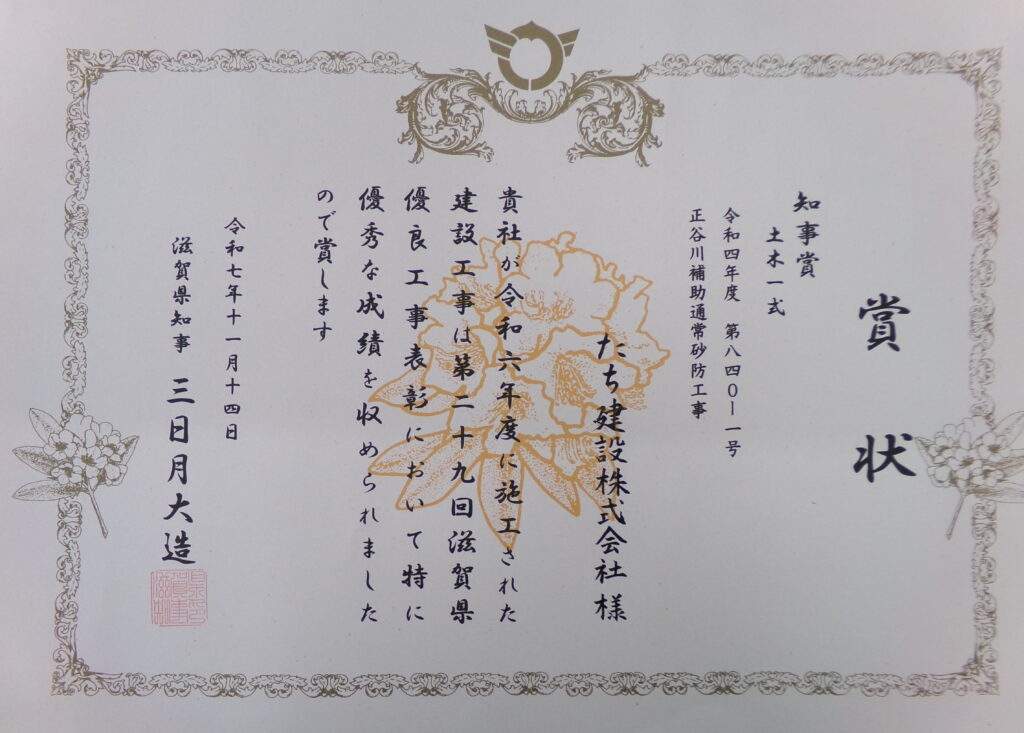 賞状
知事賞
土木一式
令和四年度　第八四〇ー一号
正谷川補助通常砂防工事
たち建設株式会社様
貴社が令和六年度に施工された
建設工事は第二十九回滋賀県
優良工事表彰において特に
優秀な成績を収められました
ので賞します
令和七年十一月十四日
滋賀県知事　三日月大造